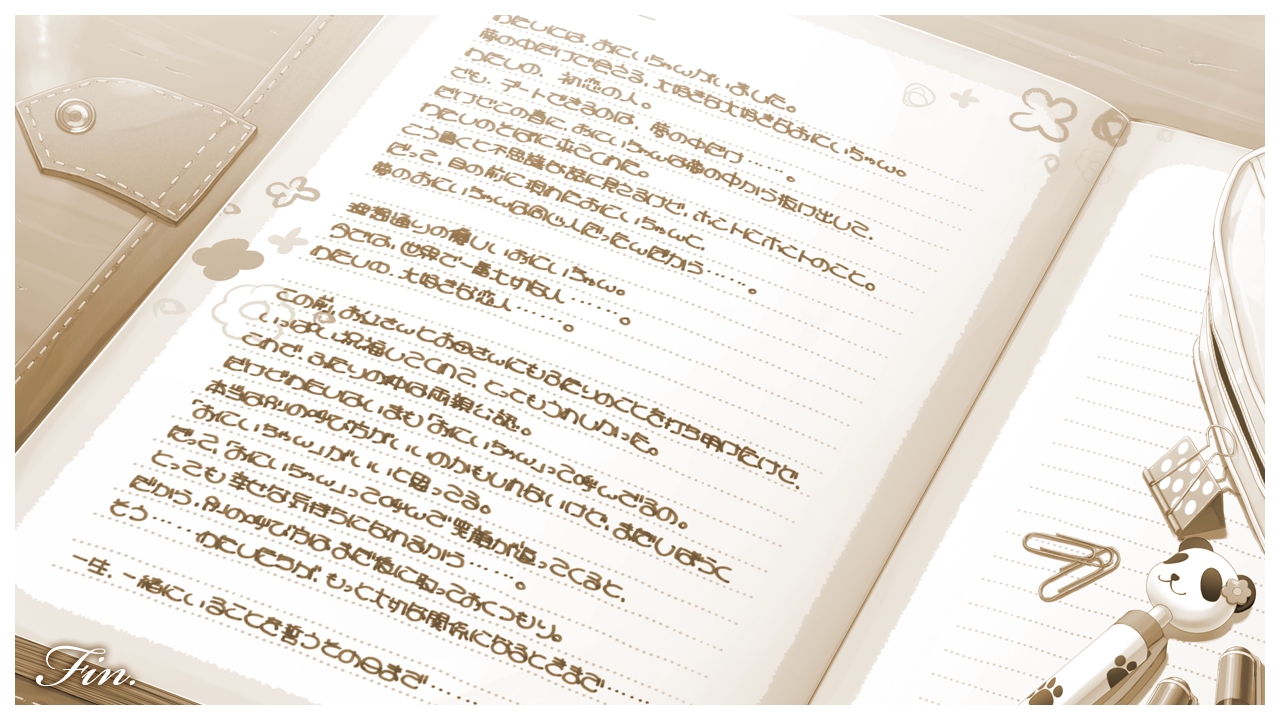 わたしには、おにいちゃんがいました。
夢の中だけで会える、大好きな大好きなおにいちゃん。
わたしの、初恋の人。
でも、デートできるのは、夢の中だけ……。
だけどこの春に、おにいちゃんは夢の中から抜け出して、
わたしのそばに来てくれた。
こう書くと不思議な話に見えるけど、ホントにホントのこと。
だって、目の前に現れたおにいちゃんと、
夢のおにいちゃんは同じ人だったんだから……。
理想通りの優しいおにいちゃん。
今では、世界で一番大切な人……。
わたしの、大好きな恋人……。
この前、お父さんとお母さんにもふたりのことを打ち明けたけど、
いっぱい祝福してくれて、とってもうれしかった。
これで、ふたりの仲は両親公認。
だけどわたしはいまも「おにいちゃん」って呼んでるの。
本当は別の呼び方がいいのかもしれないけど、まだしばらく
「おにいちゃん」がいいと思ってる。
だって、「おにいちゃん」って呼んで笑顔が返ってくると、
とっても幸せな気持ちになれるから……。
だから、別の呼び方はまだ後に取っておくつもり。
そう……わたしたちが、もっと大切な関係になるときまで……
一生、一緒にいることを誓うその日まで……
Fin.